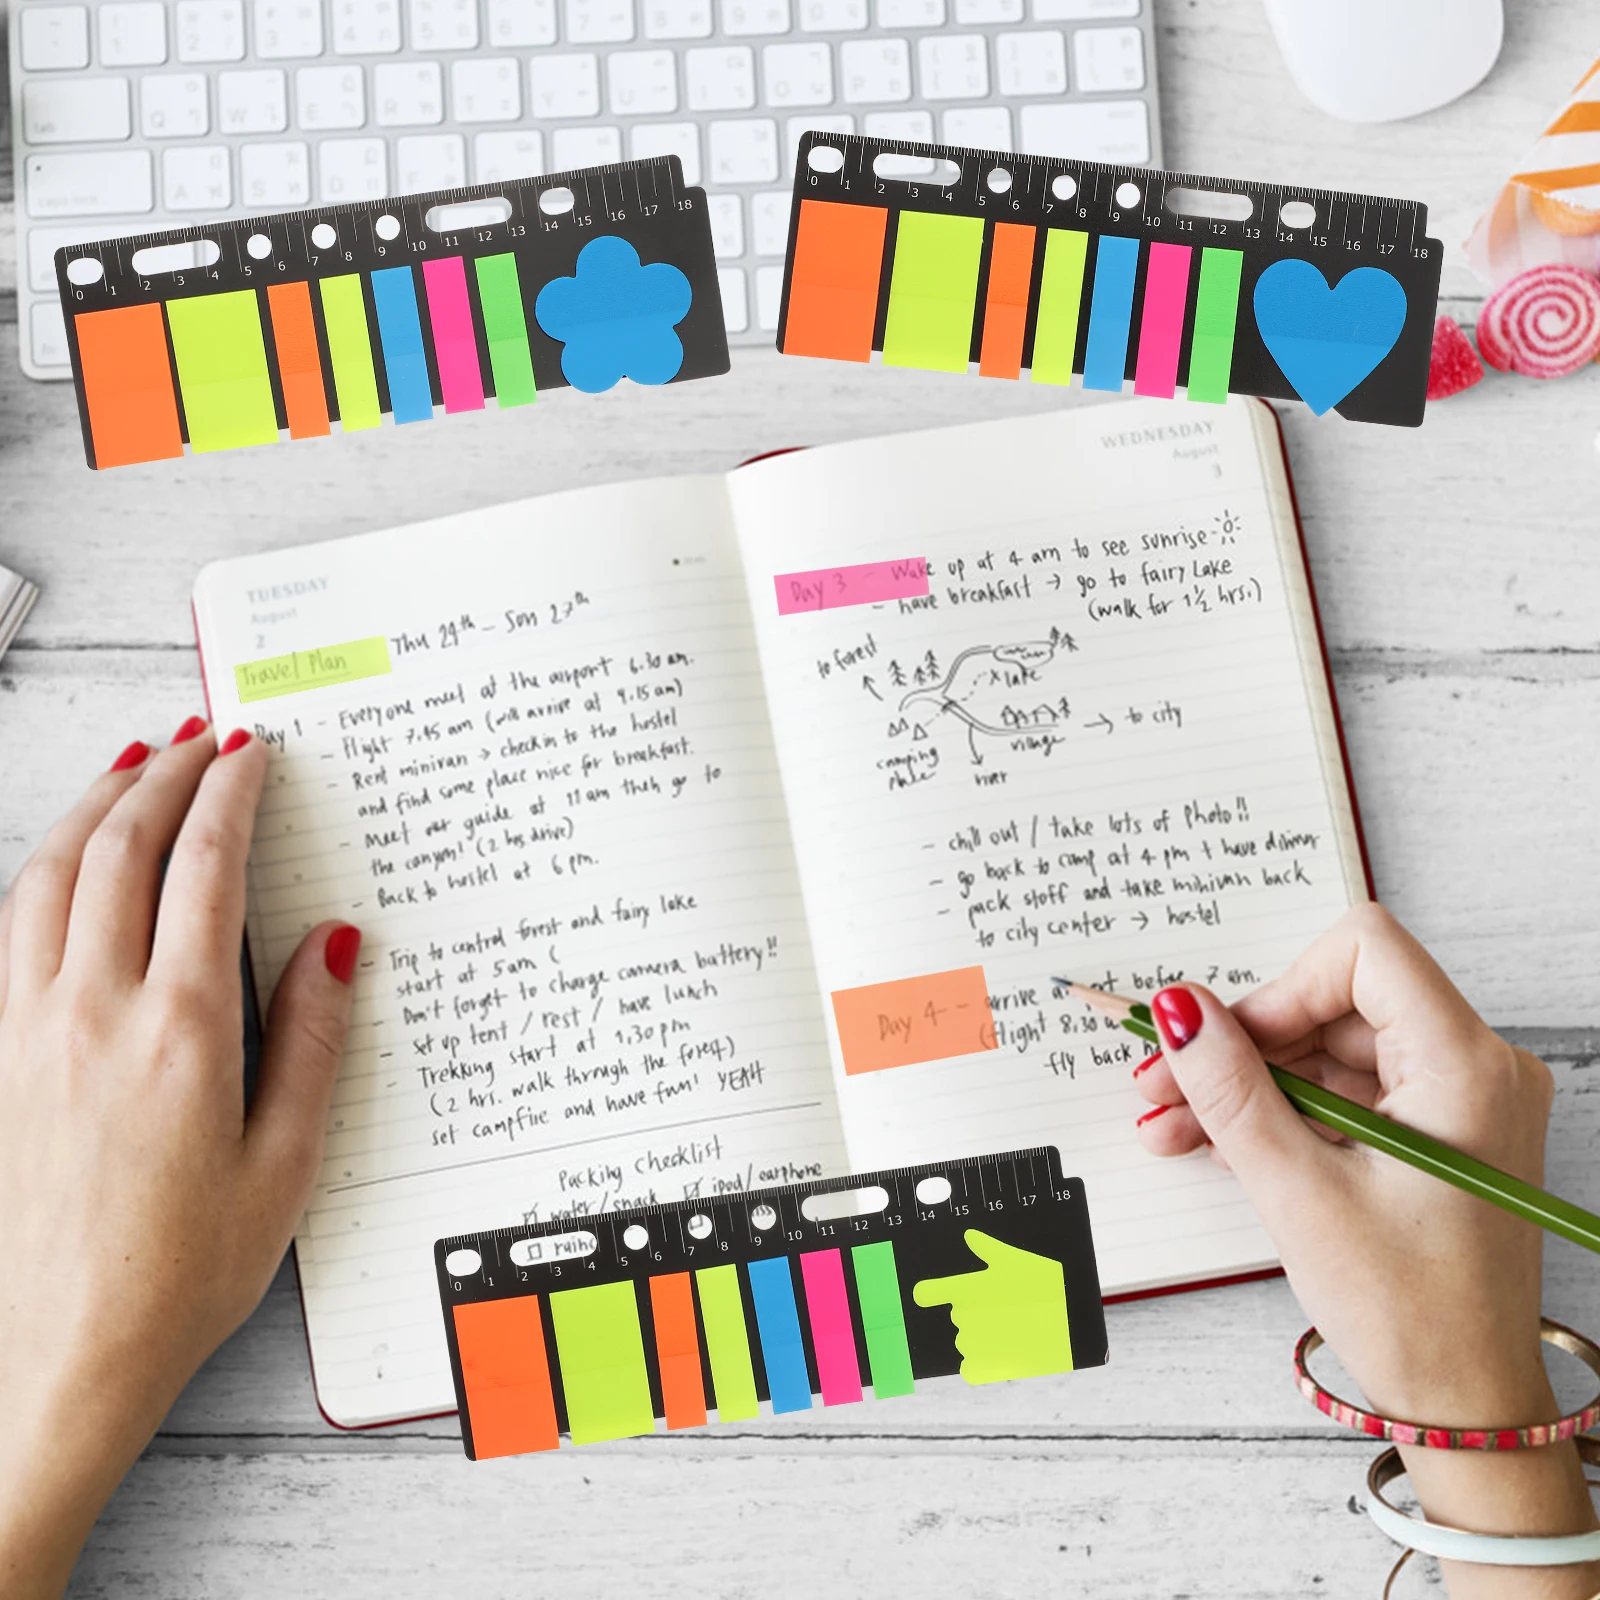 0 1 2 3 4 5 6 7 8 9 10 11 12 13 14 15 16 17 18
0 1 2 3 4 5 6 7 8 9 10 11 12 13 14 15 16 17 18
TUESDAY
August
2
Travel Plan Thu 24th - Sun 27th
Day 1 - Everyone meet at the airport 6.30 am.
- Flight 7.45 am (will arrive at 9.15 am)
- Rent minivan → check in to the hostel
and find some place nice for breakfast.
- Meet our guide at 11 am then go to
the canyon! (2 hrs drive)
- Back to hostel at 6 pm.
- Trip to central forest and fairy lake
start at 5am (
- Don't forget to charge camera battery!!
- set up tent / rest / have lunch
- Trekking start at 1.30 pm
(2 hrs. walk through the forest)
set campfire and have fun! YEAH
Packing checklist
water/snack ipod/earphone
WEDNESDAY
August
3
Day 3 - Wake up at 4 am to see sunrise
- have breakfast → go to fairy Lake
(walk for 1½ hrs.)
to forest
lake
→ to city
camping
place
village
river
- chill out / take lots of photo!!
- go back to camp at 4 pm + have dinner
- pack stuff and take minivan back
to city center → hostel
Day 4 - arrive before 7 am.
(flight 8.30
fly back
0 1 2 3 4 5 6 7 8 9 10 11 12 13 14 15 16 17 18